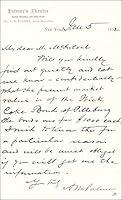 Palmer's Theatre
New York, Jan 5 189
My dear Mr Mitchell
Will you kindly
find out quietly and let
me know - confidentially -
what the present market
value is of the Frick
Coke Bonds of Pittsburg
the bonds are for $1000 each
I wish to know this for
a particular reason
and will be much obliged
if you will get me the
information
Yrs truly
A M Palmer